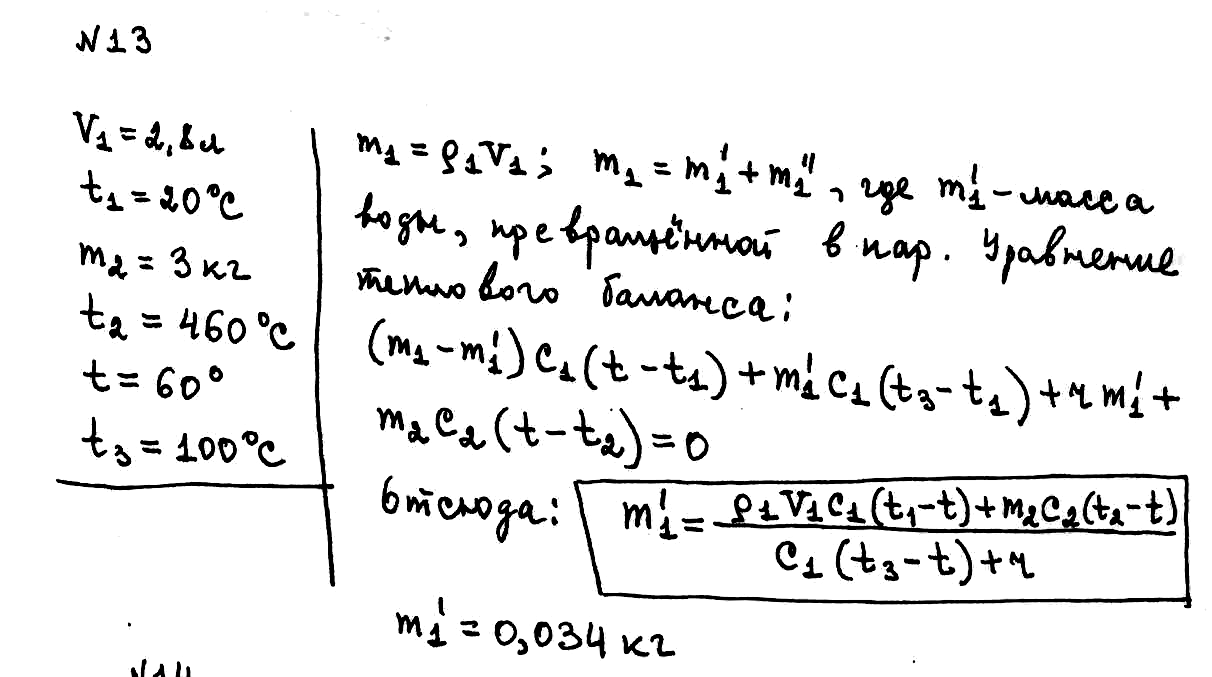 N13
V₁ = 2,8л
t₁ = 20°C
m₂ = 3 кг
t₂ = 460°C
t = 60°
t₃ = 100°C
m₁ = ρ₁V₁; m₁ = m₁' + m₁'', где m₁' - масса
воды, превращённой в пар. Уравнение
теплового баланса:
(m₁ - m₁')C₁(t - t₁) + m₁'C₁(t₃ - t₁) + r m₁' +
m₂C₂(t - t₂) = 0
Отсюда: m₁' = (ρ₁V₁C₁(t₁ - t) + m₂C₂(t₂ - t)) / (C₁(t₃ - t) + r)
m₁' = 0,034 кг
N14